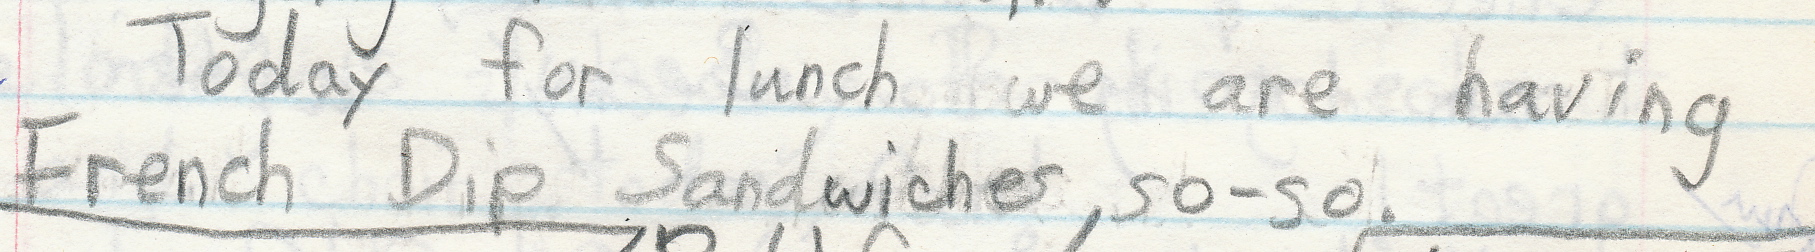 Today for lunch we are having
French Dip Sandwiches, so-so.